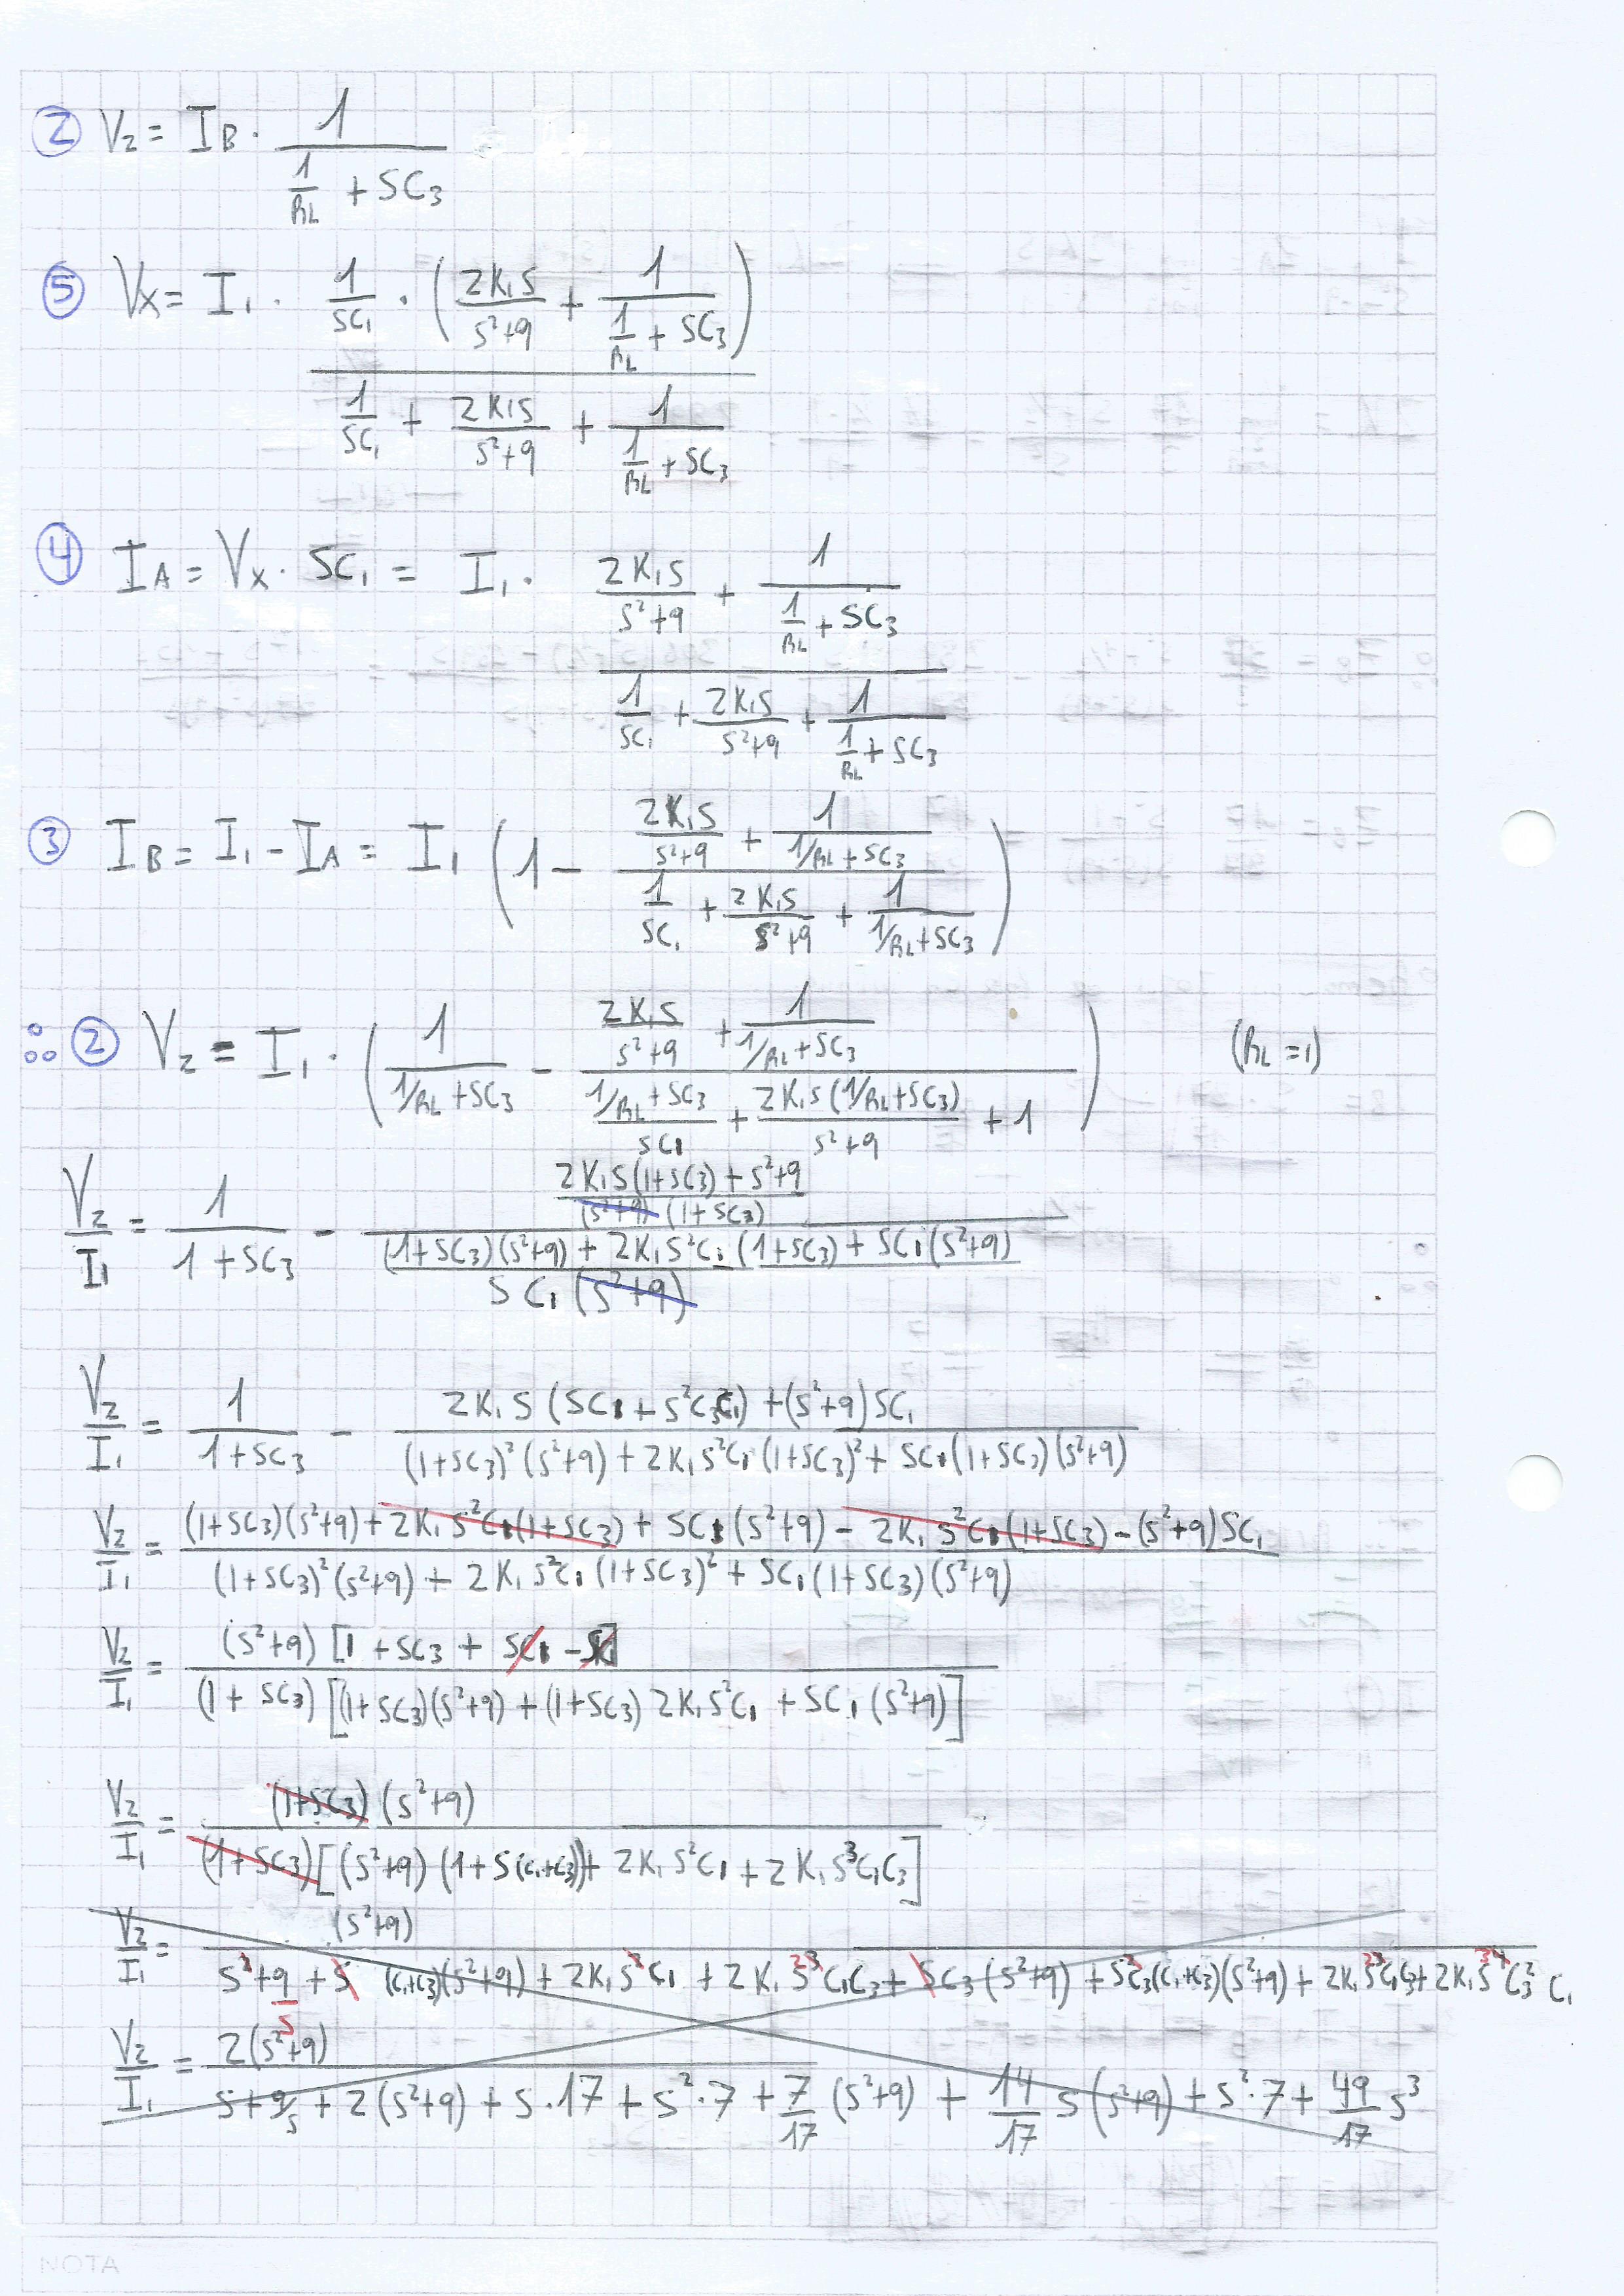 ② V₂ = I_B · 1 / (1/R_L + SC₃)
⑤ V_X = I₁ · [1/SC₁ · (2K₁S/(S²+9) + 1/(1/R_L + SC₃))] / [1/SC₁ + 2K₁S/(S²+9) + 1/(1/R_L + SC₃)]
④ I_A = V_X · SC₁ = I₁ · [2K₁S/(S²+9) + 1/(1/R_L + SC₃)] / [1/SC₁ + 2K₁S/(S²+9) + 1/(1/R_L + SC₃)]
③ I_B = I₁ - I_A = I₁ (1 - [2K₁S/(S²+9) + 1/(1/R_L + SC₃)] / [1/SC₁ + 2K₁S/(S²+9) + 1/(1/R_L + SC₃)])
∴ ② V₂ = I₁ · (1/(1/R_L + SC₃) - [2K₁S/(S²+9) + 1/(1/R_L + SC₃)] / [(1/R_L + SC₃)/SC₁ + 2K₁S(1/R_L + SC₃)/(S²+9) + 1]) (R_L = 1)
V₂/I₁ = 1/(1+SC₃) - [(2K₁S(1+SC₃) + S²+9) / ((S²+9)·(1+SC₃))] / [((1+SC₃)(S²+9) + 2K₁S²C₁(1+SC₃) + SC₁(S²+9)) / (SC₁(S²+9))]
V₂/I₁ = 1/(1+SC₃) - [2K₁S(SC₁ + S²C₃C₁) + (S²+9)SC₁] / [(1+SC₃)²(S²+9) + 2K₁S²C₁(1+SC₃)² + SC₁(1+SC₃)(S²+9)]
V₂/I₁ = [(1+SC₃)(S²+9) + 2K₁S²C₁(1+SC₃) + SC₁(S²+9) - 2K₁S²C₁(1+SC₃) - (S²+9)SC₁] / [(1+SC₃)²(S²+9) + 2K₁S²C₁(1+SC₃)² + SC₁(1+SC₃)(S²+9)]
V₂/I₁ = (S²+9)[1 + SC₃ + SC₁ - SC₁] / (1+SC₃)[(1+SC₃)(S²+9) + (1+SC₃)2K₁S²C₁ + SC₁(S²+9)]
V₂/I₁ = (1+SC₃)(S²+9) / (1+SC₃)[(S²+9)(1+S(C₁+C₃)) + 2K₁S²C₁ + 2K₁S³C₁C₃]
V₂/I₁ = (S²+9) / [S²+9/S + S(C₁+C₃)(S²+9) + 2K₁S²C₁ + 2K₁S³C₁C₃ + SC₃(S²+9) + S²C₃(C₁+C₃)(S²+9) + 2K₁S³C₁C₃ + 2K₁S⁴C₃²C₁]
V₂/I₁ = 2(S²+9) / [S + 9/S + 2(S²+9) + S·17 + S²·7 + 7/17 (S²+9) + 14/17 S(S²+9) + S²·7 + 49/17 S³]
NOTA